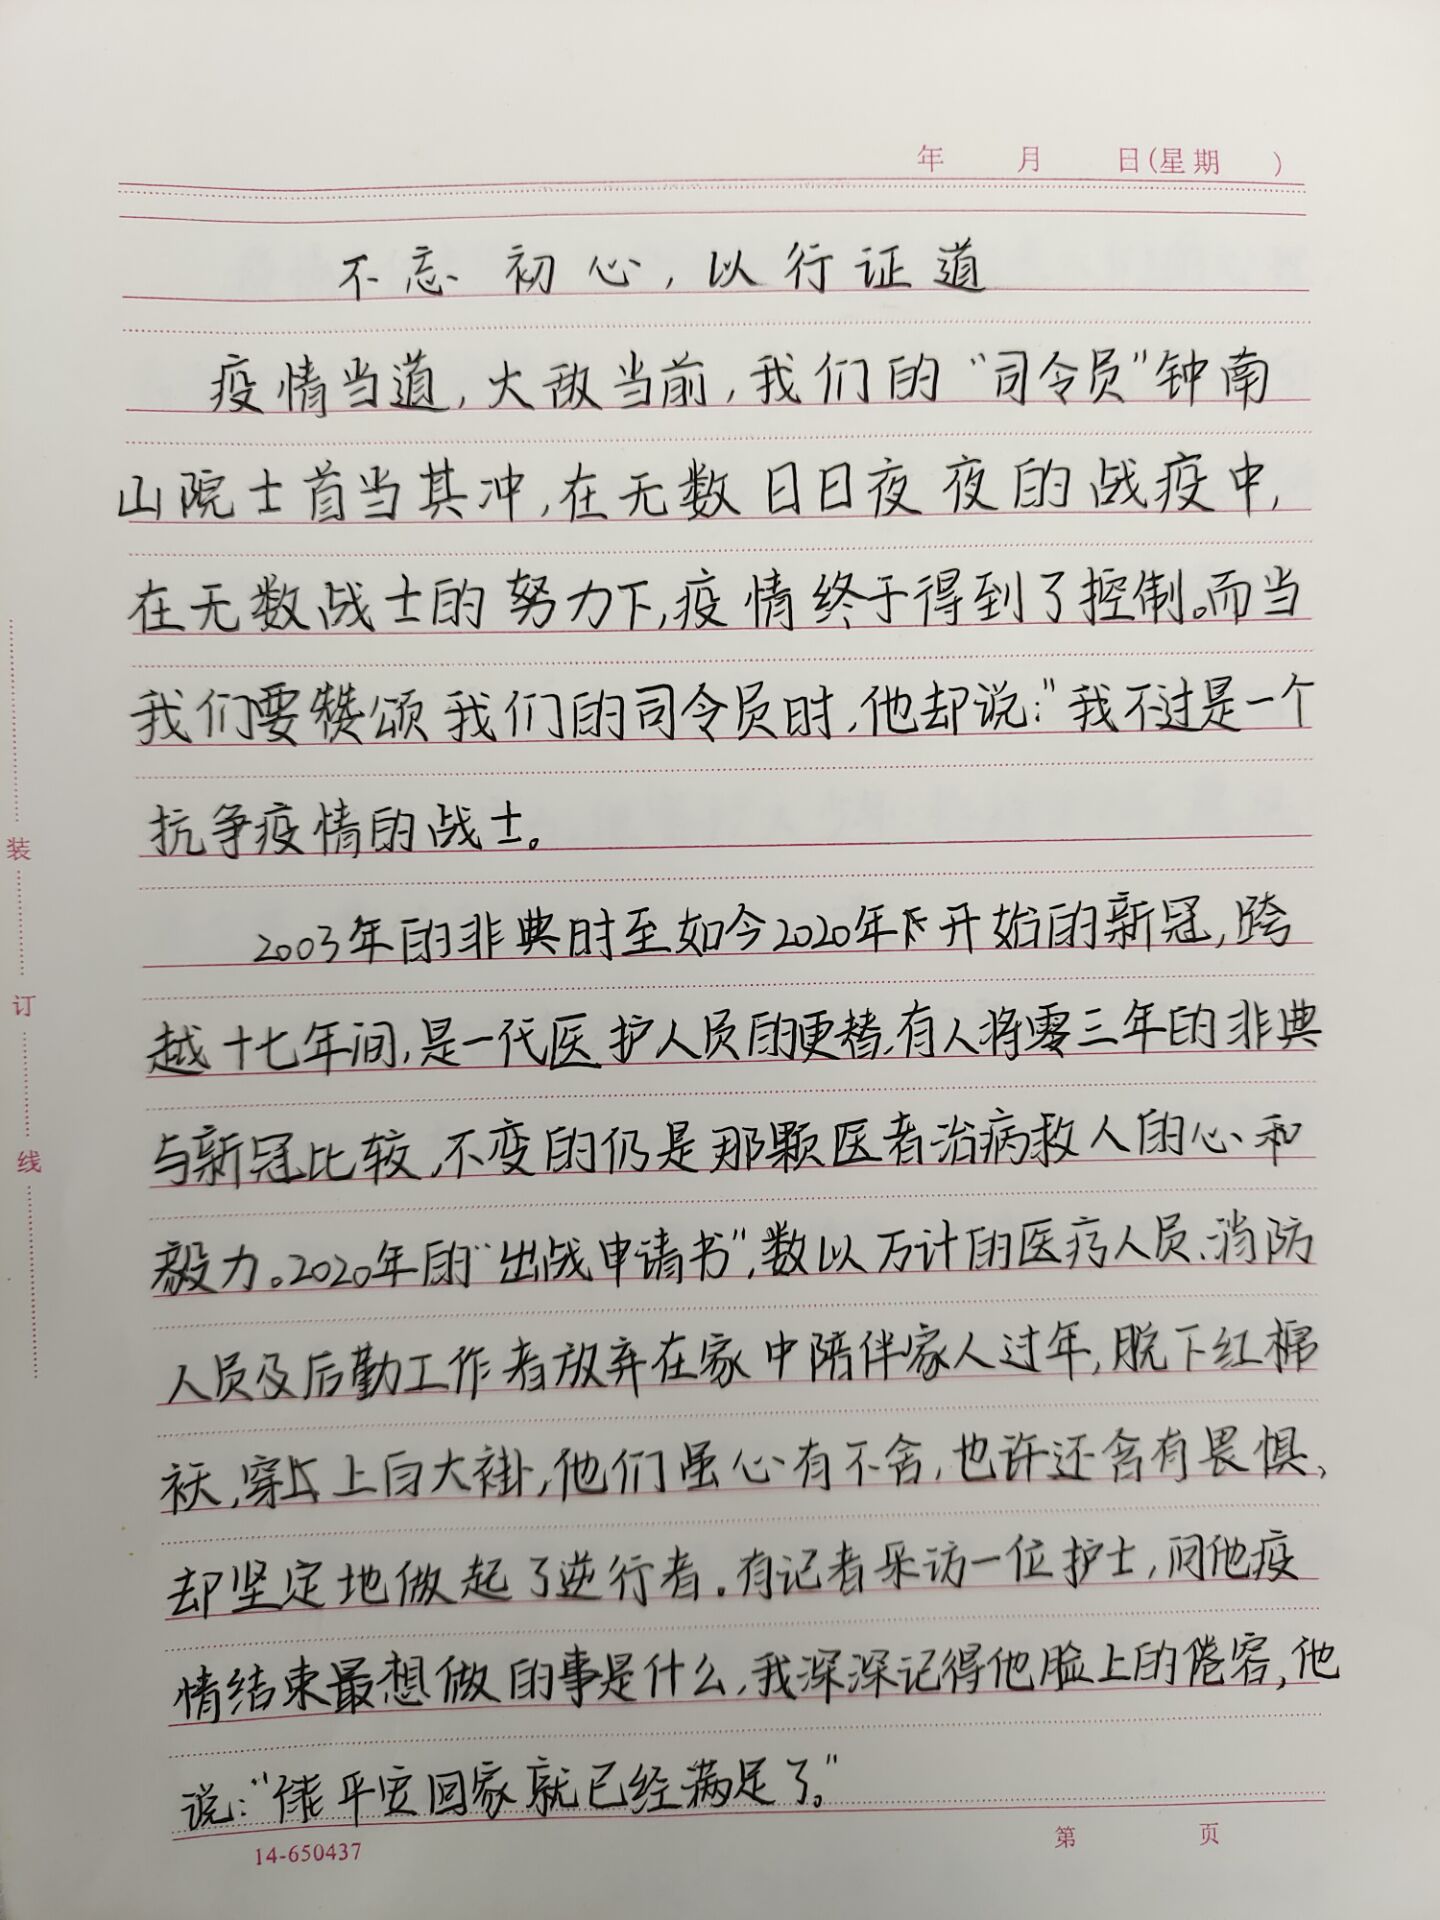 年 月 日(星期 )
不忘初心,以行证道
疫情当道,大敌当前,我们的“司令员”钟南
山院士首当其冲,在无数日日夜夜的战疫中,
在无数战士的努力下,疫情终于得到了控制。而当
我们要赞颂我们的司令员时,他却说:“我不过是一个
抗争疫情的战士。
2003年的非典时至如今2020年开始的新冠,跨
越十七年间,是一代医护人员的更替,有人将零三年的非典
与新冠比较,不变的仍是那颗医者治病救人的心和
毅力。2020年的“出战申请书”,数以万计的医疗人员、消防
人员及后勤工作者放弃在家中陪伴家人过年,脱下红棉
袄,穿上白大褂,他们虽心有不舍,也许还含有畏惧,
却坚定地做起了逆行者。有记者采访一位护士,问他疫
情结束最想做的事是什么,我深深记得他脸上的倦容,他
说:“能平安回家就已经满足了。”
装
订
线
14-650437
第 页